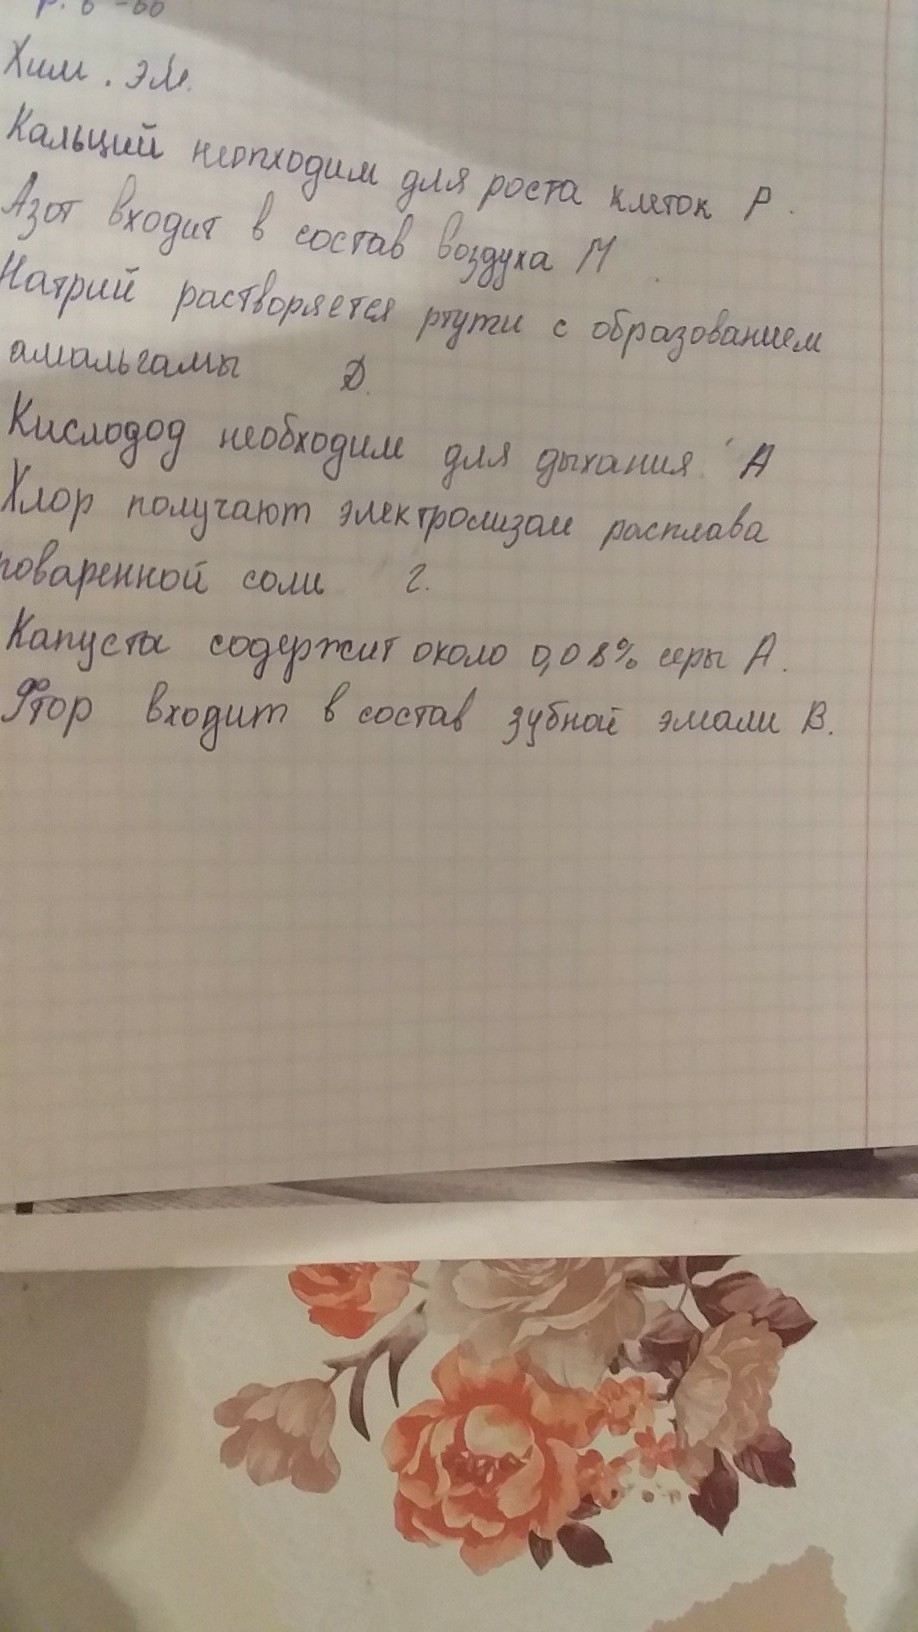 Хим. эл.
Кальций неопходим для роста клеток Р.
Азот входит в состав воздуха М
Натрий растворяется ртути с образованием
амальгамы Д.
Кислодод необходим для дыхания А
Хлор получают электролизом расплава
поваренной соли г.
Капуста содержит около 0,08% серы А.
Фтор входит в состав зубной эмали В.